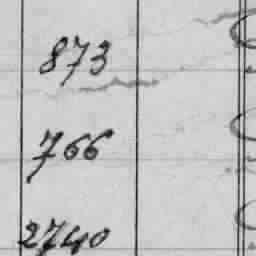 873
766
2740